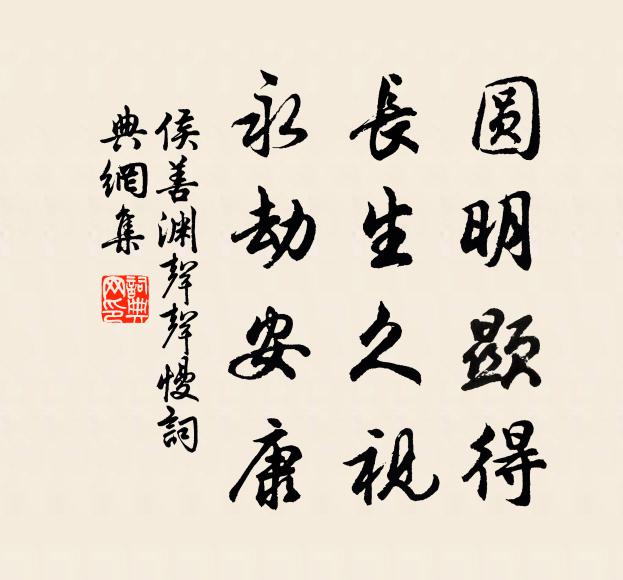 圆明显得
長生久視
永劫安康
侯善渊聲聲慢詞
典網集
詞典网印